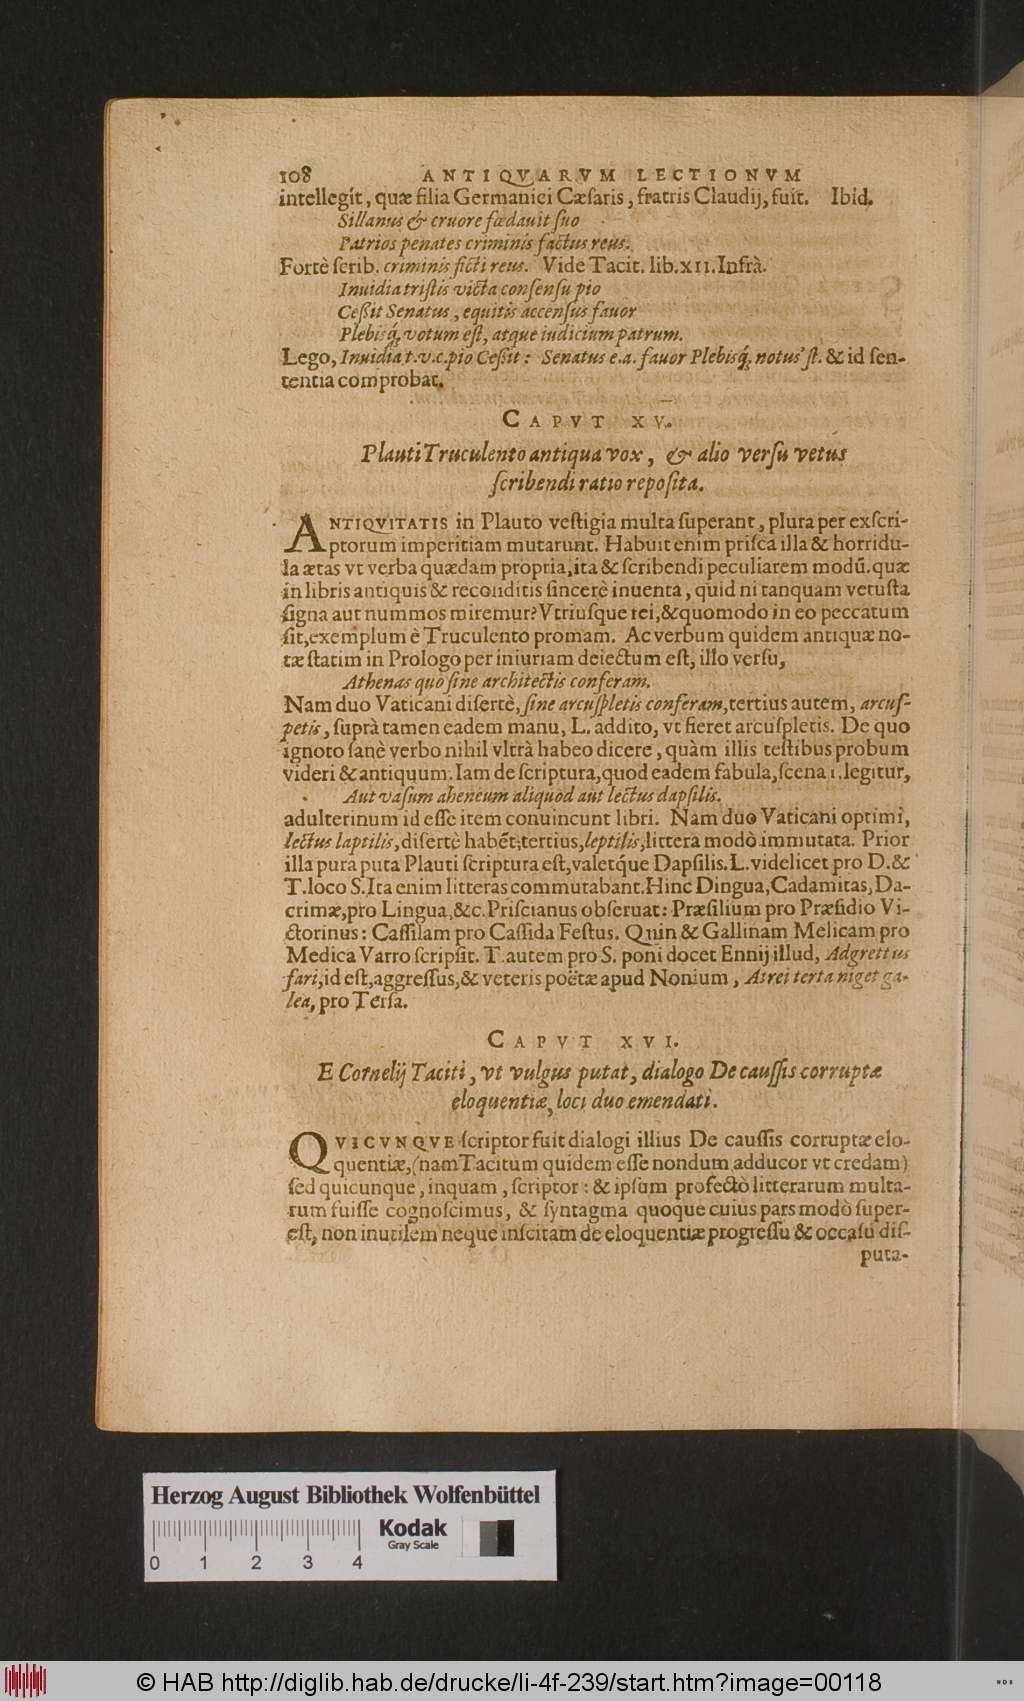 108 ANTIQVARVM LECTIONVM
intellegit, quæ filia Germanici Cæſaris, fratris Claudij, fuit. Ibid.
Sillanus & cruore fœdauit ſuo
Patrios penates criminis factus reus.
Fortè ſcrib. criminis ficti reus. Vide Tacit. lib. XII. Infrà.
Inuidia triſtis victa conſenſu pio
Ceßit Senatus, equitis accenſus fauor
Plebisq́, votum eſt, atque iudicium patrum.
Lego, Inuidia t.v.c.pio Ceßit: Senatus e.a. fauor Plebisq́, notus'ſt. & id ſen-
tentia comprobat.
CAPVT XV.
Plauti Truculento antiqua vox, & alio verſu vetus
ſcribendi ratio repoſita.
ANTIQVITATIS in Plauto veſtigia multa ſuperant, plura per exſcri-
ptorum imperitiam mutarunt. Habuit enim priſca illa & horridu-
la ætas vt verba quædam propria, ita & ſcribendi peculiarem modū. quæ
in libris antiquis & reconditis ſincerè inuenta, quid ni tanquam vetuſta
ſigna aut nummos miremur? Vtriuſque rei, & quomodo in eo peccatum
ſit, exemplum è Truculento promam. Ac verbum quidem antiquæ no-
tæ ſtatim in Prologo per iniuriam deiectum eſt, illo verſu,
Athenas quo ſine architectis conferam.
Nam duo Vaticani diſertè, ſine arcuſpletis conferam, tertius autem, arcuſ-
petis, ſuprà tamen eadem manu, L. addito, vt fieret arcuſpletis. De quo
ignoto ſanè verbo nihil vltrà habeo dicere, quàm illis teſtibus probum
videri & antiquum. Iam de ſcriptura, quod eadem fabula, ſcena I. legitur,
Aut vaſum aheneum aliquod aut lectus dapſilis.
adulterinum id eſſe item conuincunt libri. Nam duo Vaticani optimi,
lectus laptilis, diſertè habēt; tertius, leptilis; littera modò immutata. Prior
illa pura puta Plauti ſcriptura eſt, valetq́ue Dapſilis. L. videlicet pro D. &
T. loco S. Ita enim litteras commutabant. Hinc Dingua, Cadamitas, Da-
crimæ, pro Lingua, &c. Priſcianus obſeruat: Præſilium pro Præſidio Vi-
ctorinus: Caſſilam pro Caſſida Feſtus. Quin & Gallinam Melicam pro
Medica Varro ſcripſit. T. autem pro S. poni docet Ennij illud, Adgrettus
fari, id eſt, aggreſſus, & veteris poëtæ apud Nonium, Atrei terta niget ga-
lea, pro Terſa.
CAPVT XVI.
E Cornelij Taciti, vt vulgus putat, dialogo De cauſſis corruptæ
eloquentiæ, loci duo emendati.
QVICVNQVE ſcriptor fuit dialogi illius De cauſſis corruptæ elo-
quentiæ, (nam Tacitum quidem eſſe nondum adducor vt credam)
ſed quicunque, inquam, ſcriptor: & ipſum profectò litterarum multa-
rum fuiſſe cognoſcimus, & ſyntagma quoque cuius pars modò ſuper-
eſt, non inutilem neque inſcitam de eloquentiæ progreſſu & occaſu diſ-
puta-
Herzog August Bibliothek Wolfenbüttel
Kodak
Gray Scale
0 1 2 3 4
© HAB http://diglib.hab.de/drucke/li-4f-239/start.htm?image=00118